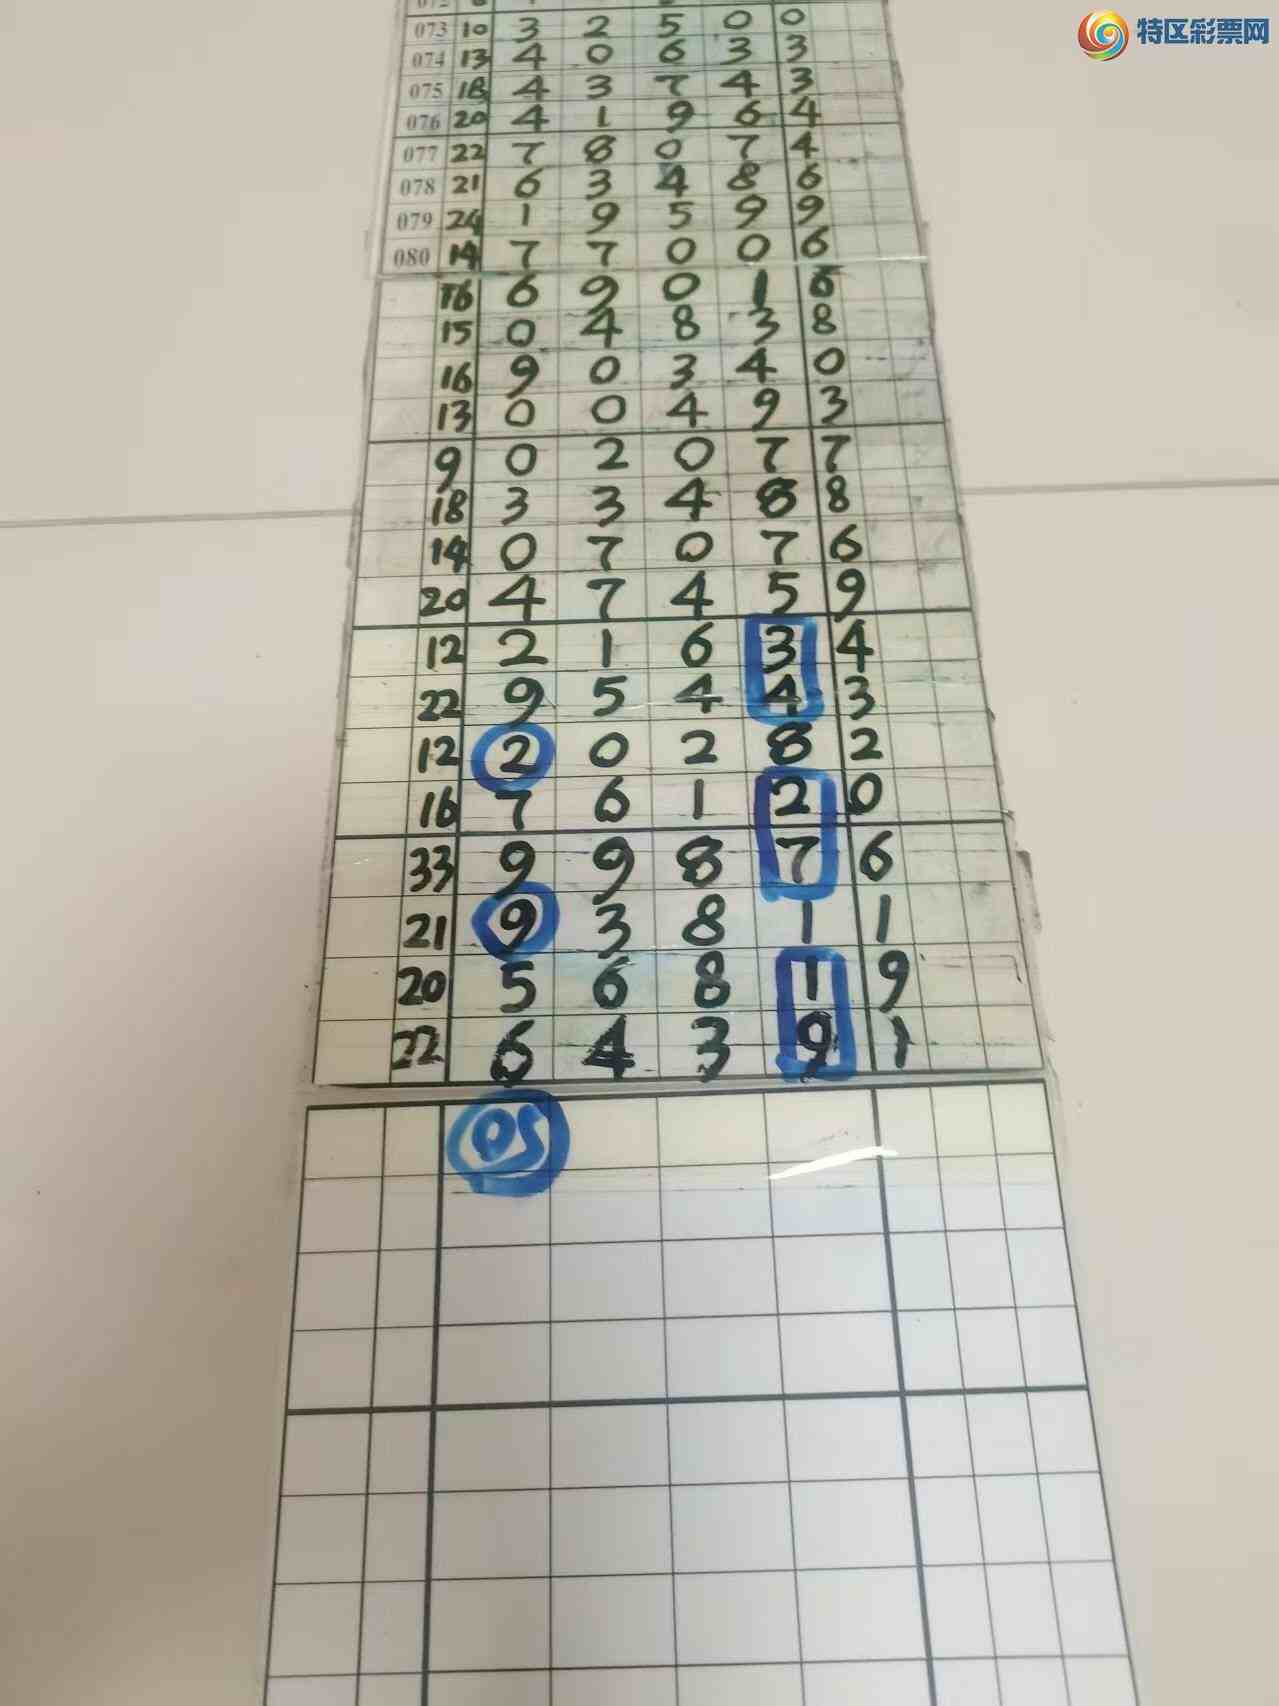 特区彩票网
073 10 3 2 5 0 0
074 13 4 0 6 3 3
075 18 4 3 7 4 3
076 20 4 1 9 6 4
077 22 7 8 0 7 4
078 21 6 3 4 8 6
079 24 1 9 5 9 9
080 14 7 7 0 0 6
16 6 9 0 1 6
15 0 4 8 3 8
16 9 0 3 4 0
13 0 0 4 9 3
9 0 2 0 7 7
18 3 3 4 8 8
14 0 7 0 7 6
20 4 7 4 5 9
12 2 1 6 3 4
22 9 5 4 4 3
12 2 0 2 8 2
16 7 6 1 2 0
33 9 9 8 7 6
21 9 3 8 1 1
20 5 6 8 1 9
22 6 4 3 9 1
05